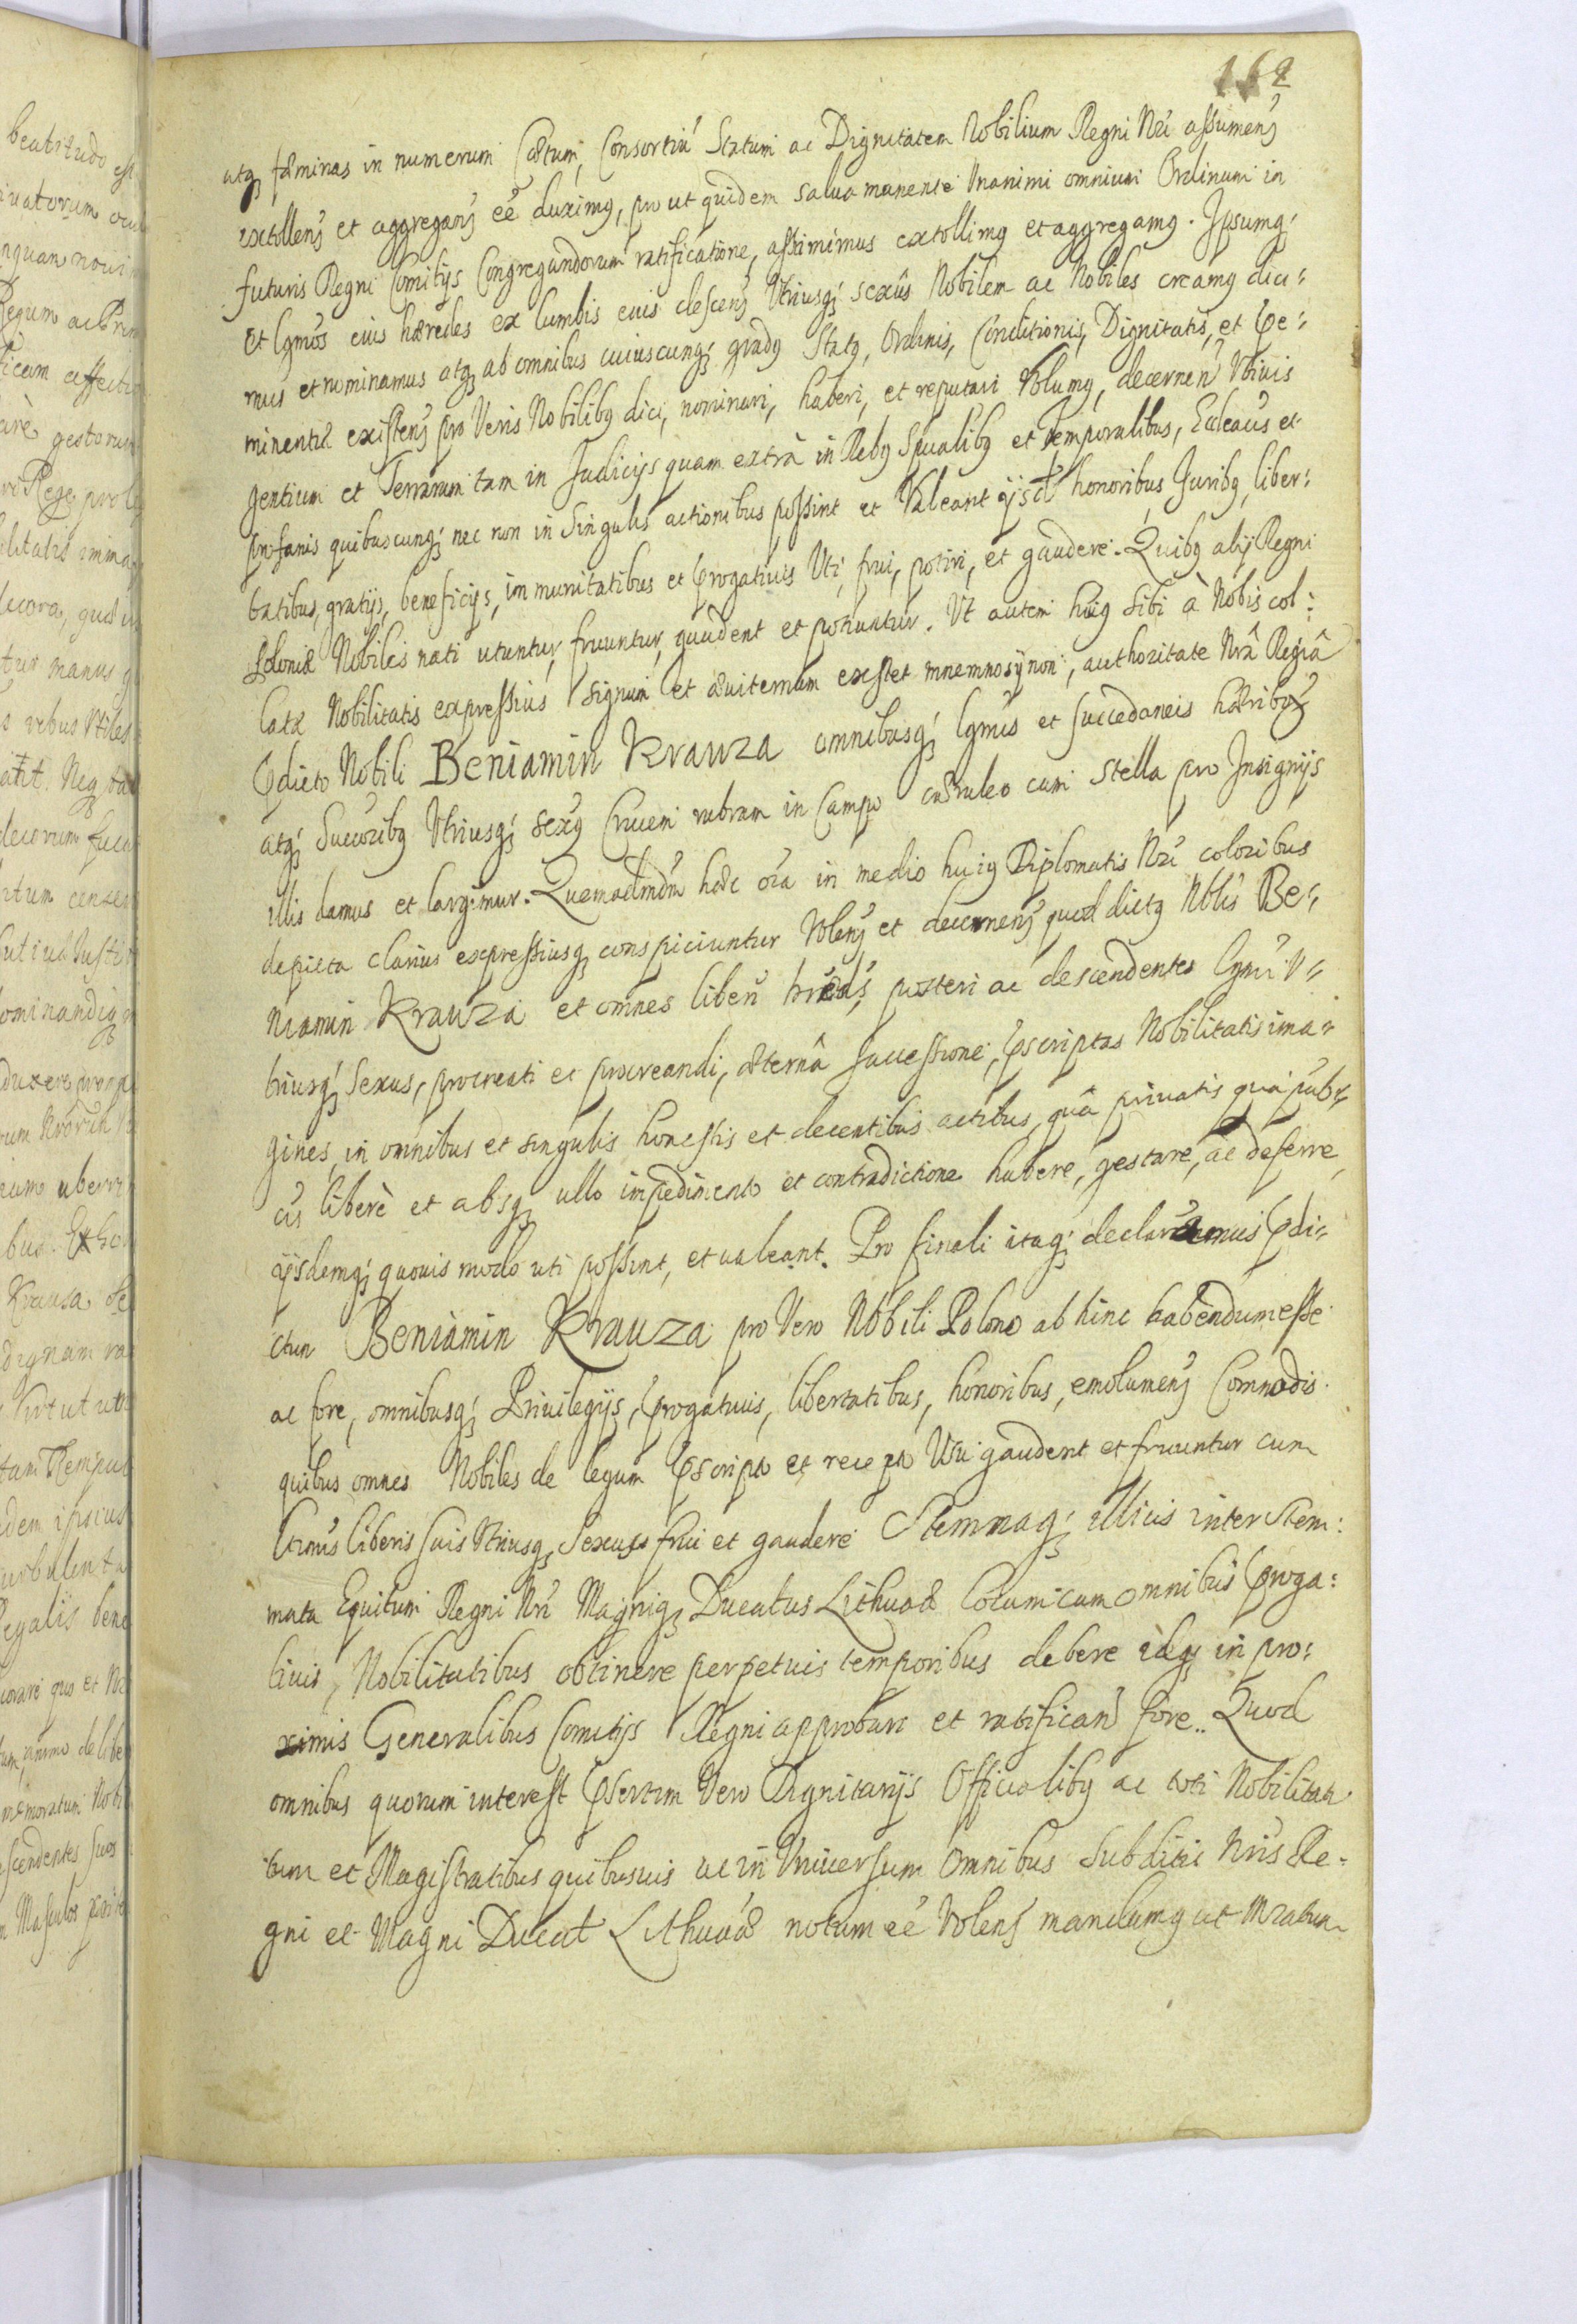 162
atq fæminas in numerum Cætum, Consortiũ Statum ac Dignitatem Nobilium Regni Nri assumens
extollens et aggregans eé duximq, pro ut quidem salva manente Vnanimi omnium Ordinum in
futuris Regni Comitijs Congregandorum ratificatione, assumimus extollimq et aggregamq. Ipsumq
et lgmos eius hæredes ex lumbis eius descens Vtriusq sexûs Nobilem ac Nobiles creamq dici=
mus et nominamus atq ab omnibus cuiuscunq gradq Statq, Ordinis, Conditionis, Dignitatis, et Prᶒe=
minentiæ existens pro Veris Nobilibq dici, nominari, haberi, et reputari Volumq, decernen Vbiuis
gentium et Terrarum tam in Judicijs quam extrà in Rebq Spualibq et Temporalibus, Ecclᶒauis et
profanis quibuscunq nec non in Singulis actionibus possint et Valeant ijsd honoribus, Juribq, liber=
tatibus, gratijs, beneficijs, immunitatibus et progatiuis Vti, frui, potiri, et gaudere. Quibq alij Regni
Poloniæ Nobiles nati utuntur, fruuntur, gaudent et potiuntur. Vt autem huiq Sibi à Nobis col=
latæ Nobilitatis expressius signum et æuiternum exstet mnemnosynon, authoritate Nrâ Regiâ
Pdicto Nobili Beniamin Krauza omnibusq lgmis et succedaneis hæribq
atq Succoribq Vtriusq sexq Crucem rubram in Campo cæruleo cum stella pro Insignijs
illis damus et largimur. Quemadmdm hæc oïa in medio huiq Diplomatis Nri coloribus
depicta clarius expressiusq conspiciuntur Volens et decernens quod dictq Nblis Be=
niamin Krauza et omnes liberi hreds, posteri ac descendentes lgmi V=
triusq Sexus, procreati et procreandi, æternâ successione, pscriptas Nobilitatis ima=
gines, in omnibus et singulis honestis et decentibus actibus, quâ priuatis quâ pub=
cis liberè et absq ullo impedimento et contradictione habere, gestare, ac deferre
ijsdemq quouis modo uti possint, et ualeant. Pro finali itaq declaramus Pdi=
ctum Beniamin Krauza pro Vero Nobili Polono ab hinc habendum esse
ac fore, omnibusq Priuilegijs, progatiuis, libertatibus, honoribus, emolumens Commodis
quibus omnes Nobiles de legum pscripto et recepto Usu gaudent et fruuntur cum
ltimis liberis suis Vtriusq Sexus frui et gaudere Stemmaq illius inter stem=
mata Equitum Regni Nri Magniq Ducatus Lithuaæ locum cum omnibus proga=
tiuis, Nobilitatibus obtinere perpetuis temporibus debere idq in pro=
ximis Generalibus Comitijs Regni approbari et ratifican fore. Quod
omnibus quorum interest psertim Vero Dignitarijs Officialibq ac toti Nobilitati
tum et Magistratibus quibusuis ac in Vniuersum omnibus Subditis Nris Re=
gni et Magni Ducat Lithuaæ notum eé Volens mandamq ut